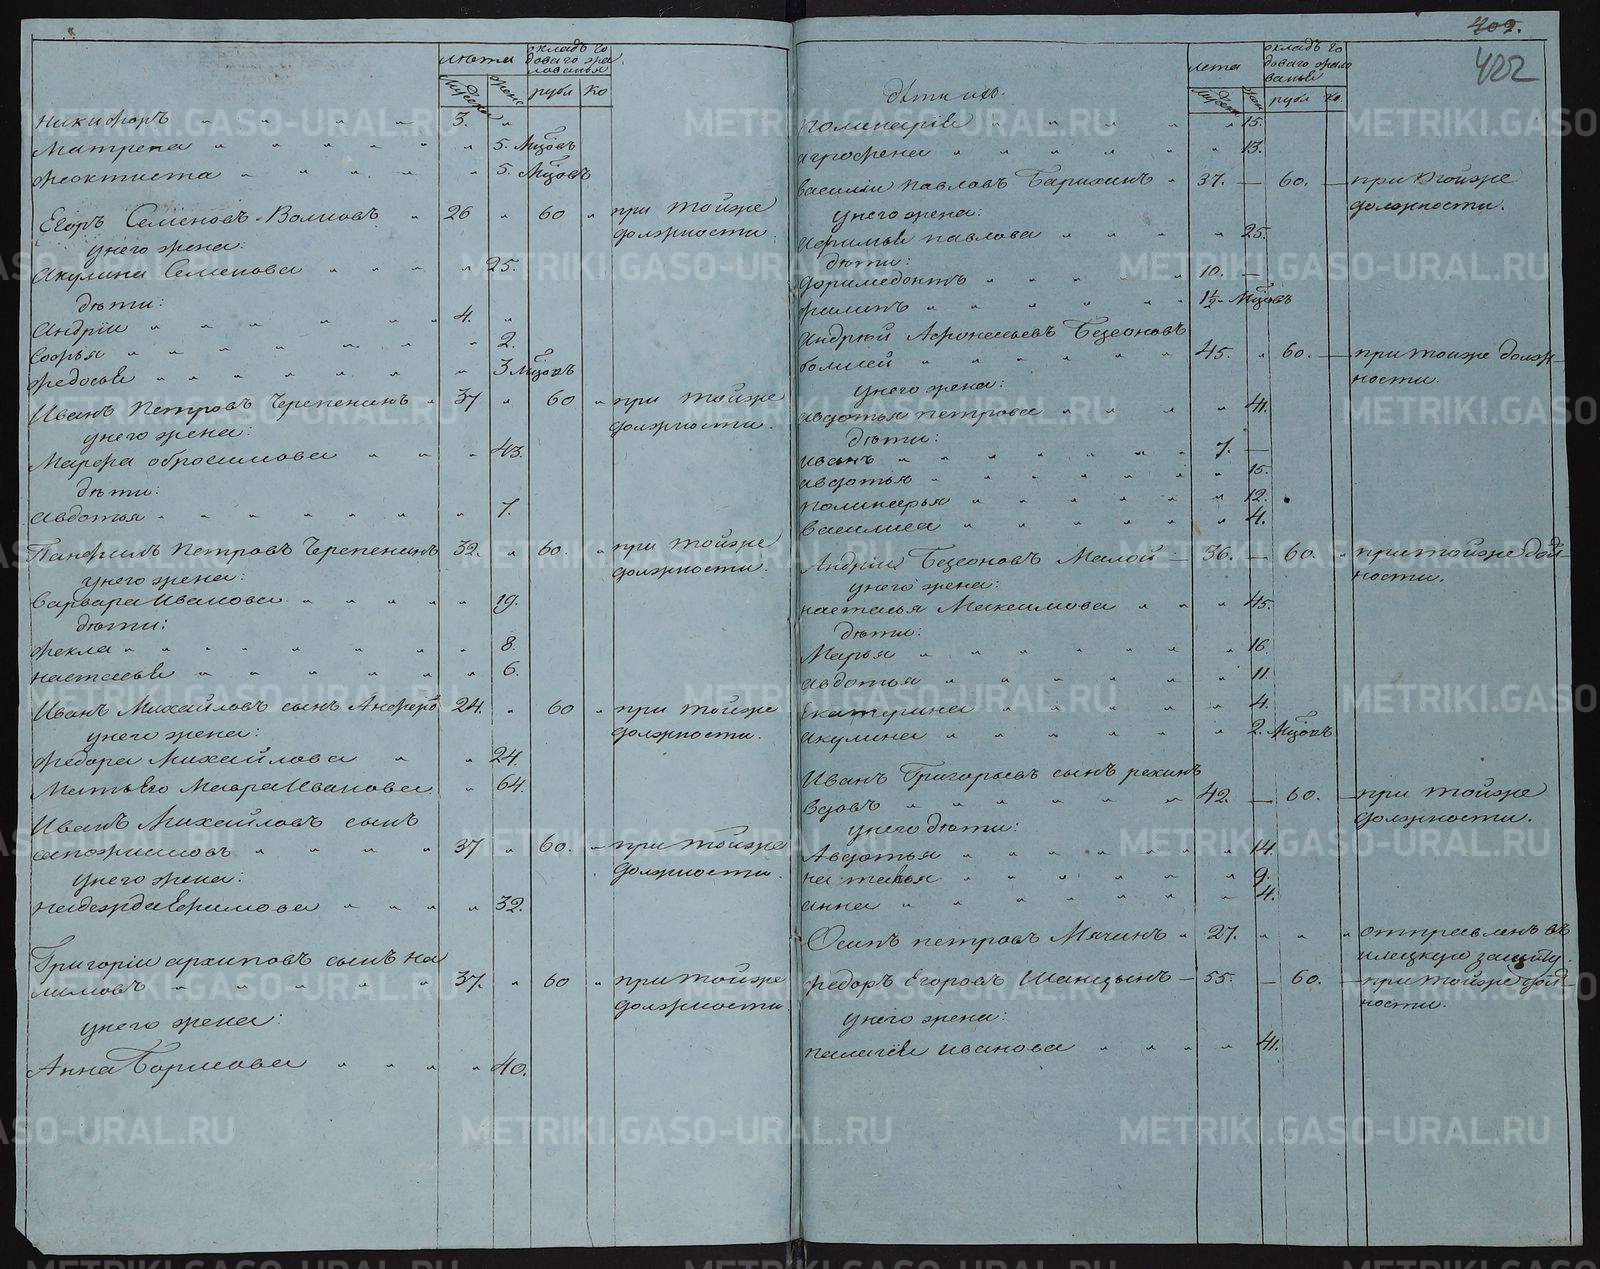 лѣта
окладъ го
доваго жа
лованья
мужск
женс
рубл
ко
Никифоръ 3.
Матрена 5. Мцовъ
Феоктиста 5. Мцовъ
Егоръ Семеновъ Волковъ 26 60 при тойже
должности.
у него жена:
Акулина Семенова 25.
дѣти:
Андрiй 4.
Софья 2.
Федосья 3 Мцовъ
Иванъ Петровъ Черепенинъ 37 60 при тойже
должности.
у него жена:
Марфа обросимова 43.
дѣти:
авдотья 7.
Панфилъ петровъ Черепенинъ 32. 60. при тойже
должности.
у него жена:
варвара Иванова 19.
дѣти:
Фекла 8.
настасья 6.
Иванъ Михайловъ сынъ 24. 60 при тойже
должности.
у него жена:
Федора Михайлова 24.
Мать его Мавра Иванова 64.
Иванъ Михайловъ сынъ
сапожниковъ 37 60. при тойже
должности.
у него жена:
надежда Ефимова 32.
Григорiй архиповъ сынъ на
лимовъ 37. 60 при тойже
должности.
у него жена:
Анна Борисова 40.
409.
422
лета
окладъ го
доваго жало
ванья
рубл
ко.
дѣти ихъ.
поликарiя 15.
агрофена 13.
василiй павловъ Барихинъ 37. — 60. — при тойже
должности.
у него жена:
павлова 25.
дѣти:
доримедонтъ 10. —
филипъ 1½ - Мцовъ
Андрей Афонасьевъ
болшей 45. 60. — при тойже долж
ности.
у него жена:
авдотья петрова 41.
дѣти:
иванъ 7. —
авдотья 15.
поликарья 12.
василиса 4.
Андрiй Малой 36. — 60. при тойже дол
ности.
у него жена:
наталья Максимова 45.
дѣти:
Марья 16.
авдотья 11
Екатерина 4.
акулина 2. Мцовъ
Иванъ Григорьевъ сынъ
вдовъ 42. — 60. — при тойже
должности.
у него дѣти:
Авдотья 14.
наталья 9.
анна 4.
Осипъ петровъ Мячинъ 27. отправленъ въ
илецкую защиту.
Федоръ Егоровъ Шаницынъ — 55. — 60. — при тойже дол
ности.
у него жена:
палагея иванова 41.
METRIKI.GASO-URAL.RU